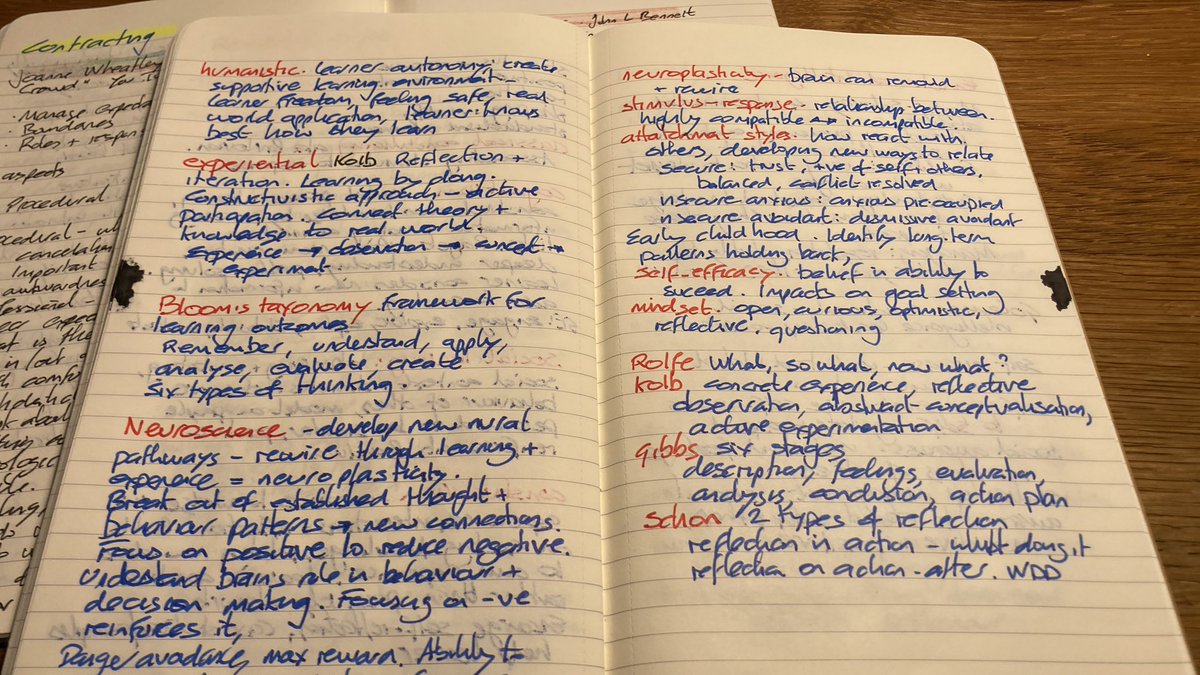 Contracting
Joanne Wheatley
Crowd" You I
· Manage expecta
· Boundaries
· Roles + respon
aspects
Procedural
cedural - wh
cancelation
Important
awkwardnes
fessional -
at is the
in/out
comfo
John L Bennett
humanistic. learner autonomy, create
supportive learning environment -
learner freedom, feeling safe, real
world application, learner knows
best how they learn
experiential Kolb Reflection +
iteration. Learning by doing.
Constructivistic approach - active
participation. connect theory +
knowledge to real world.
Experience → observation → concept →
experiment.
Bloom's taxonomy framework for
learning outcomes
Remember, understand, apply,
analyse, evaluate, create
six types of thinking.
Neuroscience - develop new nural
pathways - rewire through learning +
experience = neuroplasticity.
Break out of established thought +
behaviour patterns → new connections.
Focus on positive to reduce negative.
Understand brain's role in behaviour +
decision making. Focusing on -ve
reinforces it,
max reward. Ability to
neuroplasticity - brain can remould
+ rewire
stimulus-response. relationship between.
highly compatible ↔ incompatible.
attatchment styles. how react with
others, developing new ways to relate
secure: trust, +ve of self+others,
balanced, conflict resolved
insecure anxious: anxious preoccupied
insecure avoidant: dismissive avoidant
Early childhood. Identify long-term
patterns holding back,
self-efficacy. belief in ability to
succeed. Impacts on goal setting
mindset. open, curious, optimistic,
reflective. questioning
Rolfe What, so what, now what?
Kolb concrete experience, reflective
observation, abstract conceptualisation,
active experimentation
gibbs six stages
description, feelings, evaluation,
analysis, conclusion, action plan
Schon 2 types of reflection
reflection in action - what doing it
reflection on action - after. WDD